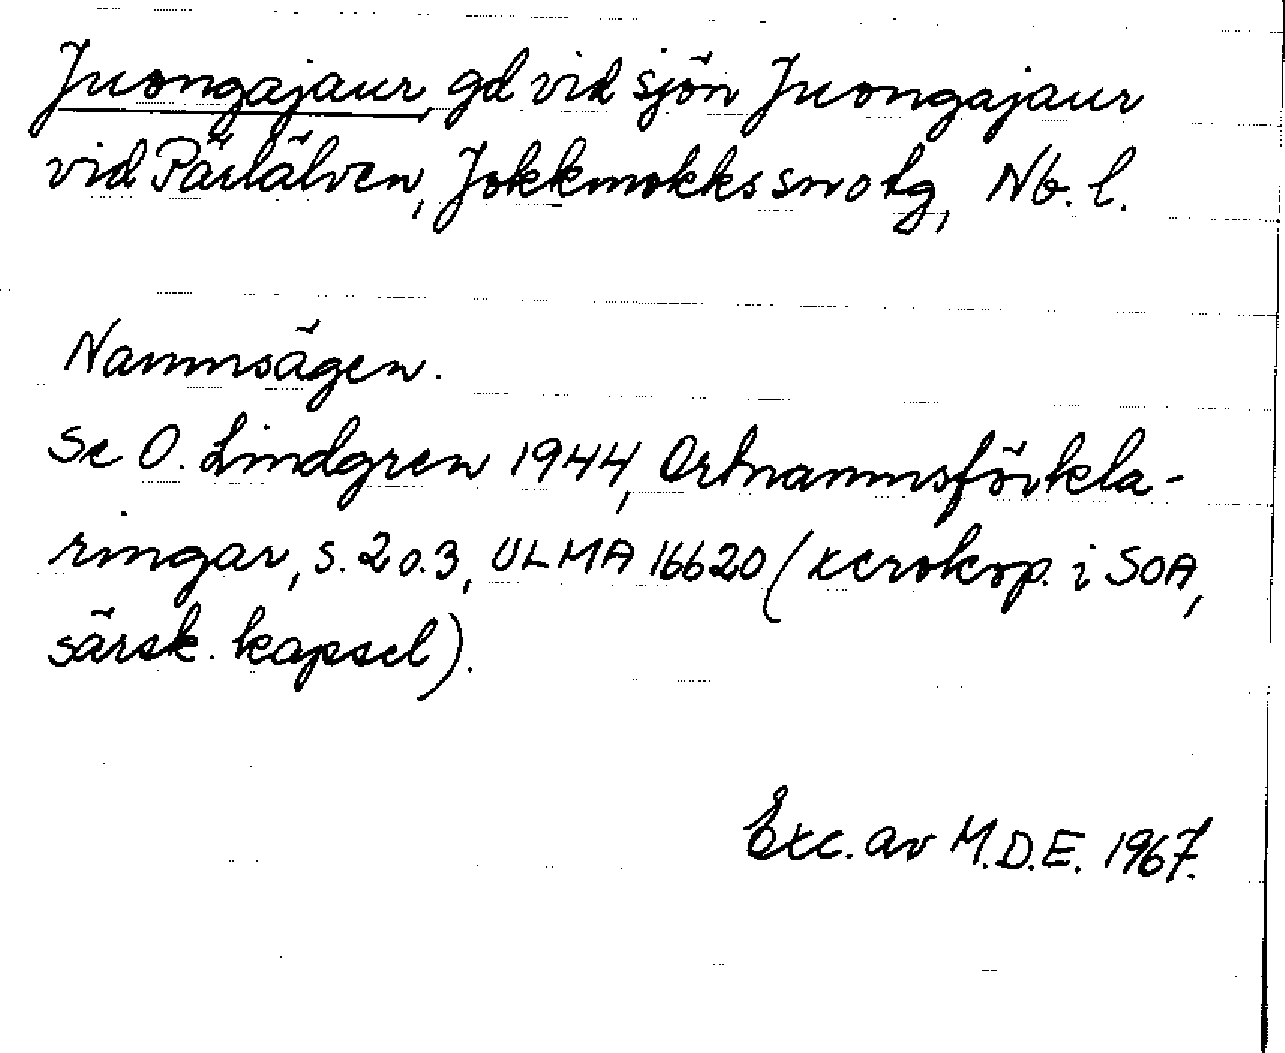 Juongajaur, gd vid sjön Juongajaur
vid Pärlälven, Jokkmokks sn o tg, Nb. l.
Namnsägen.
Se O. Lindgren 1944, Ortnamnsförkla-
ringar, s. 2 o. 3, ULMA 16620 (xerokop. i SOA,
särsk. kapsel).
Exc. av M.D.E. 1967.